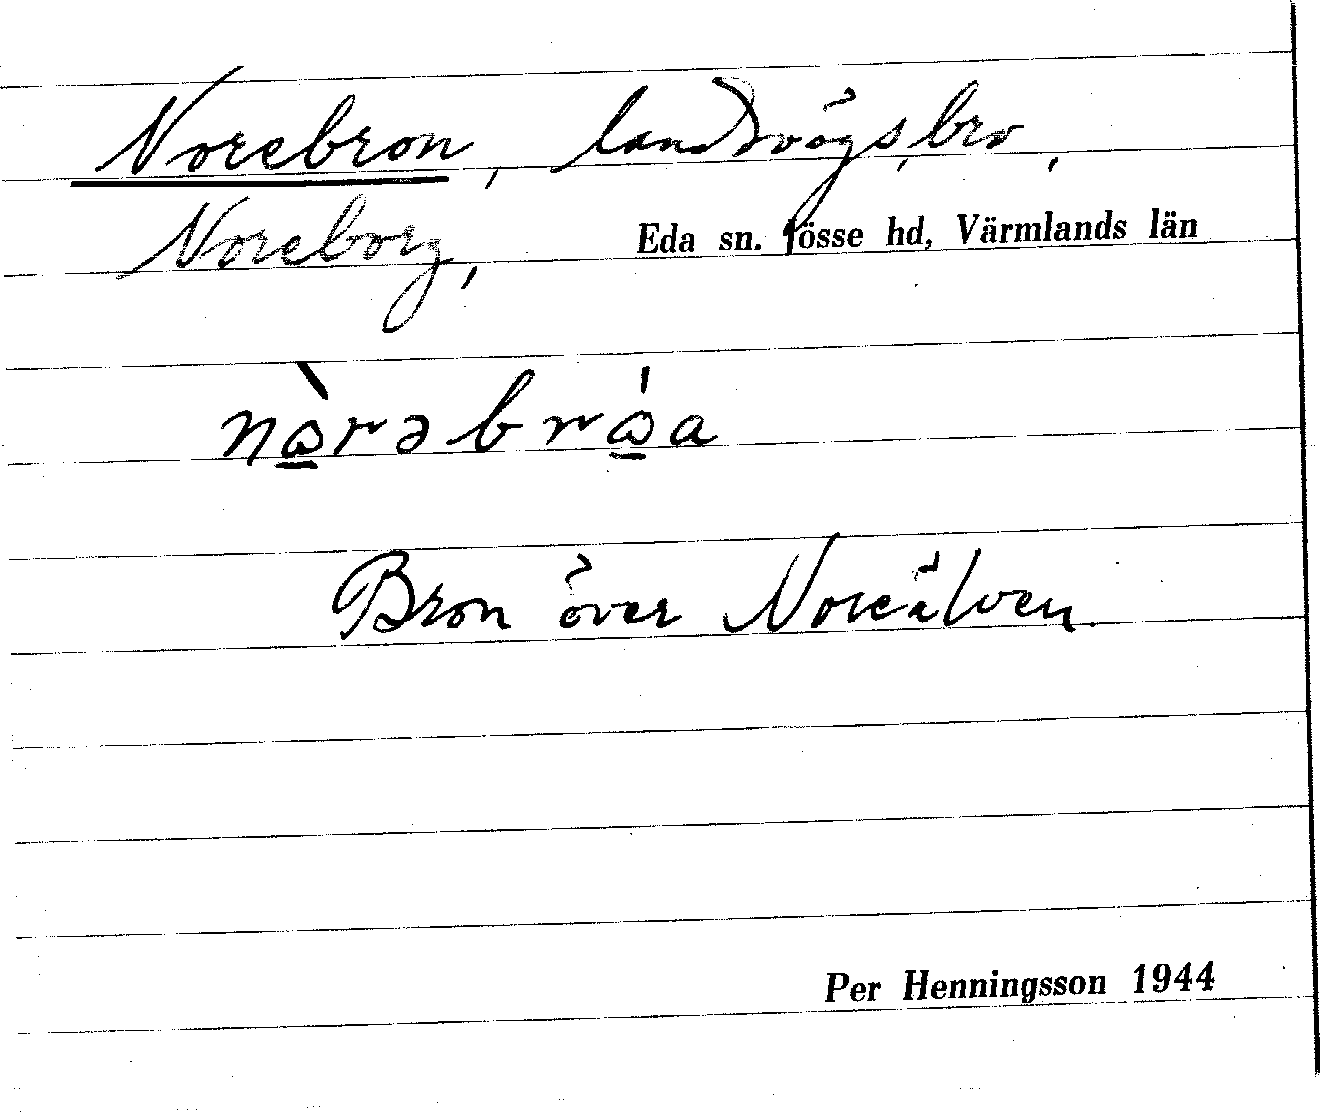 Norebron, landsvägsbro,
Noreborg, Eda sn. Jösse hd, Värmlands län
nɷ̠̀rəbrɷ̠́a
Bron över Noreälven.
Per Henningsson 1944